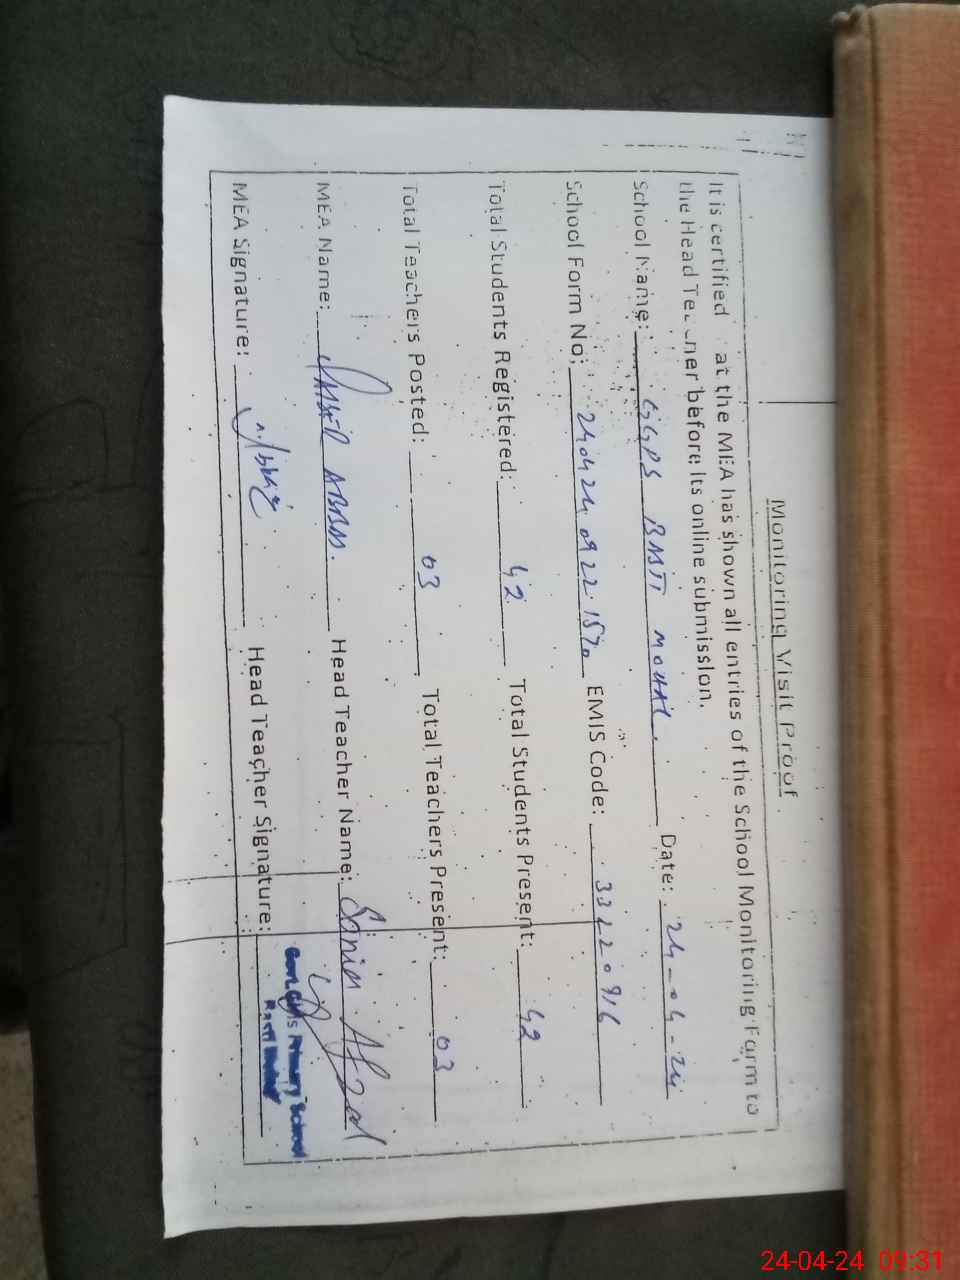 Monitoring Visit Proof
It is certified at the MEA has shown all entries of the School Monitoring Form to
the Head Teacher before its online submission.
School Name: GGPS BASTI Date: 24-04-24
School Form No: EMIS Code:
Total Students Registered: 42 Total Students Present: 42
Total Teachers Posted: 03 Total Teachers Present: 03
MEA Name: ABBAS. Head Teacher Name: Sonia Afzal
MEA Signature: Head Teacher Signature:
Govt. Girls Primary School
24-04-24 09:31